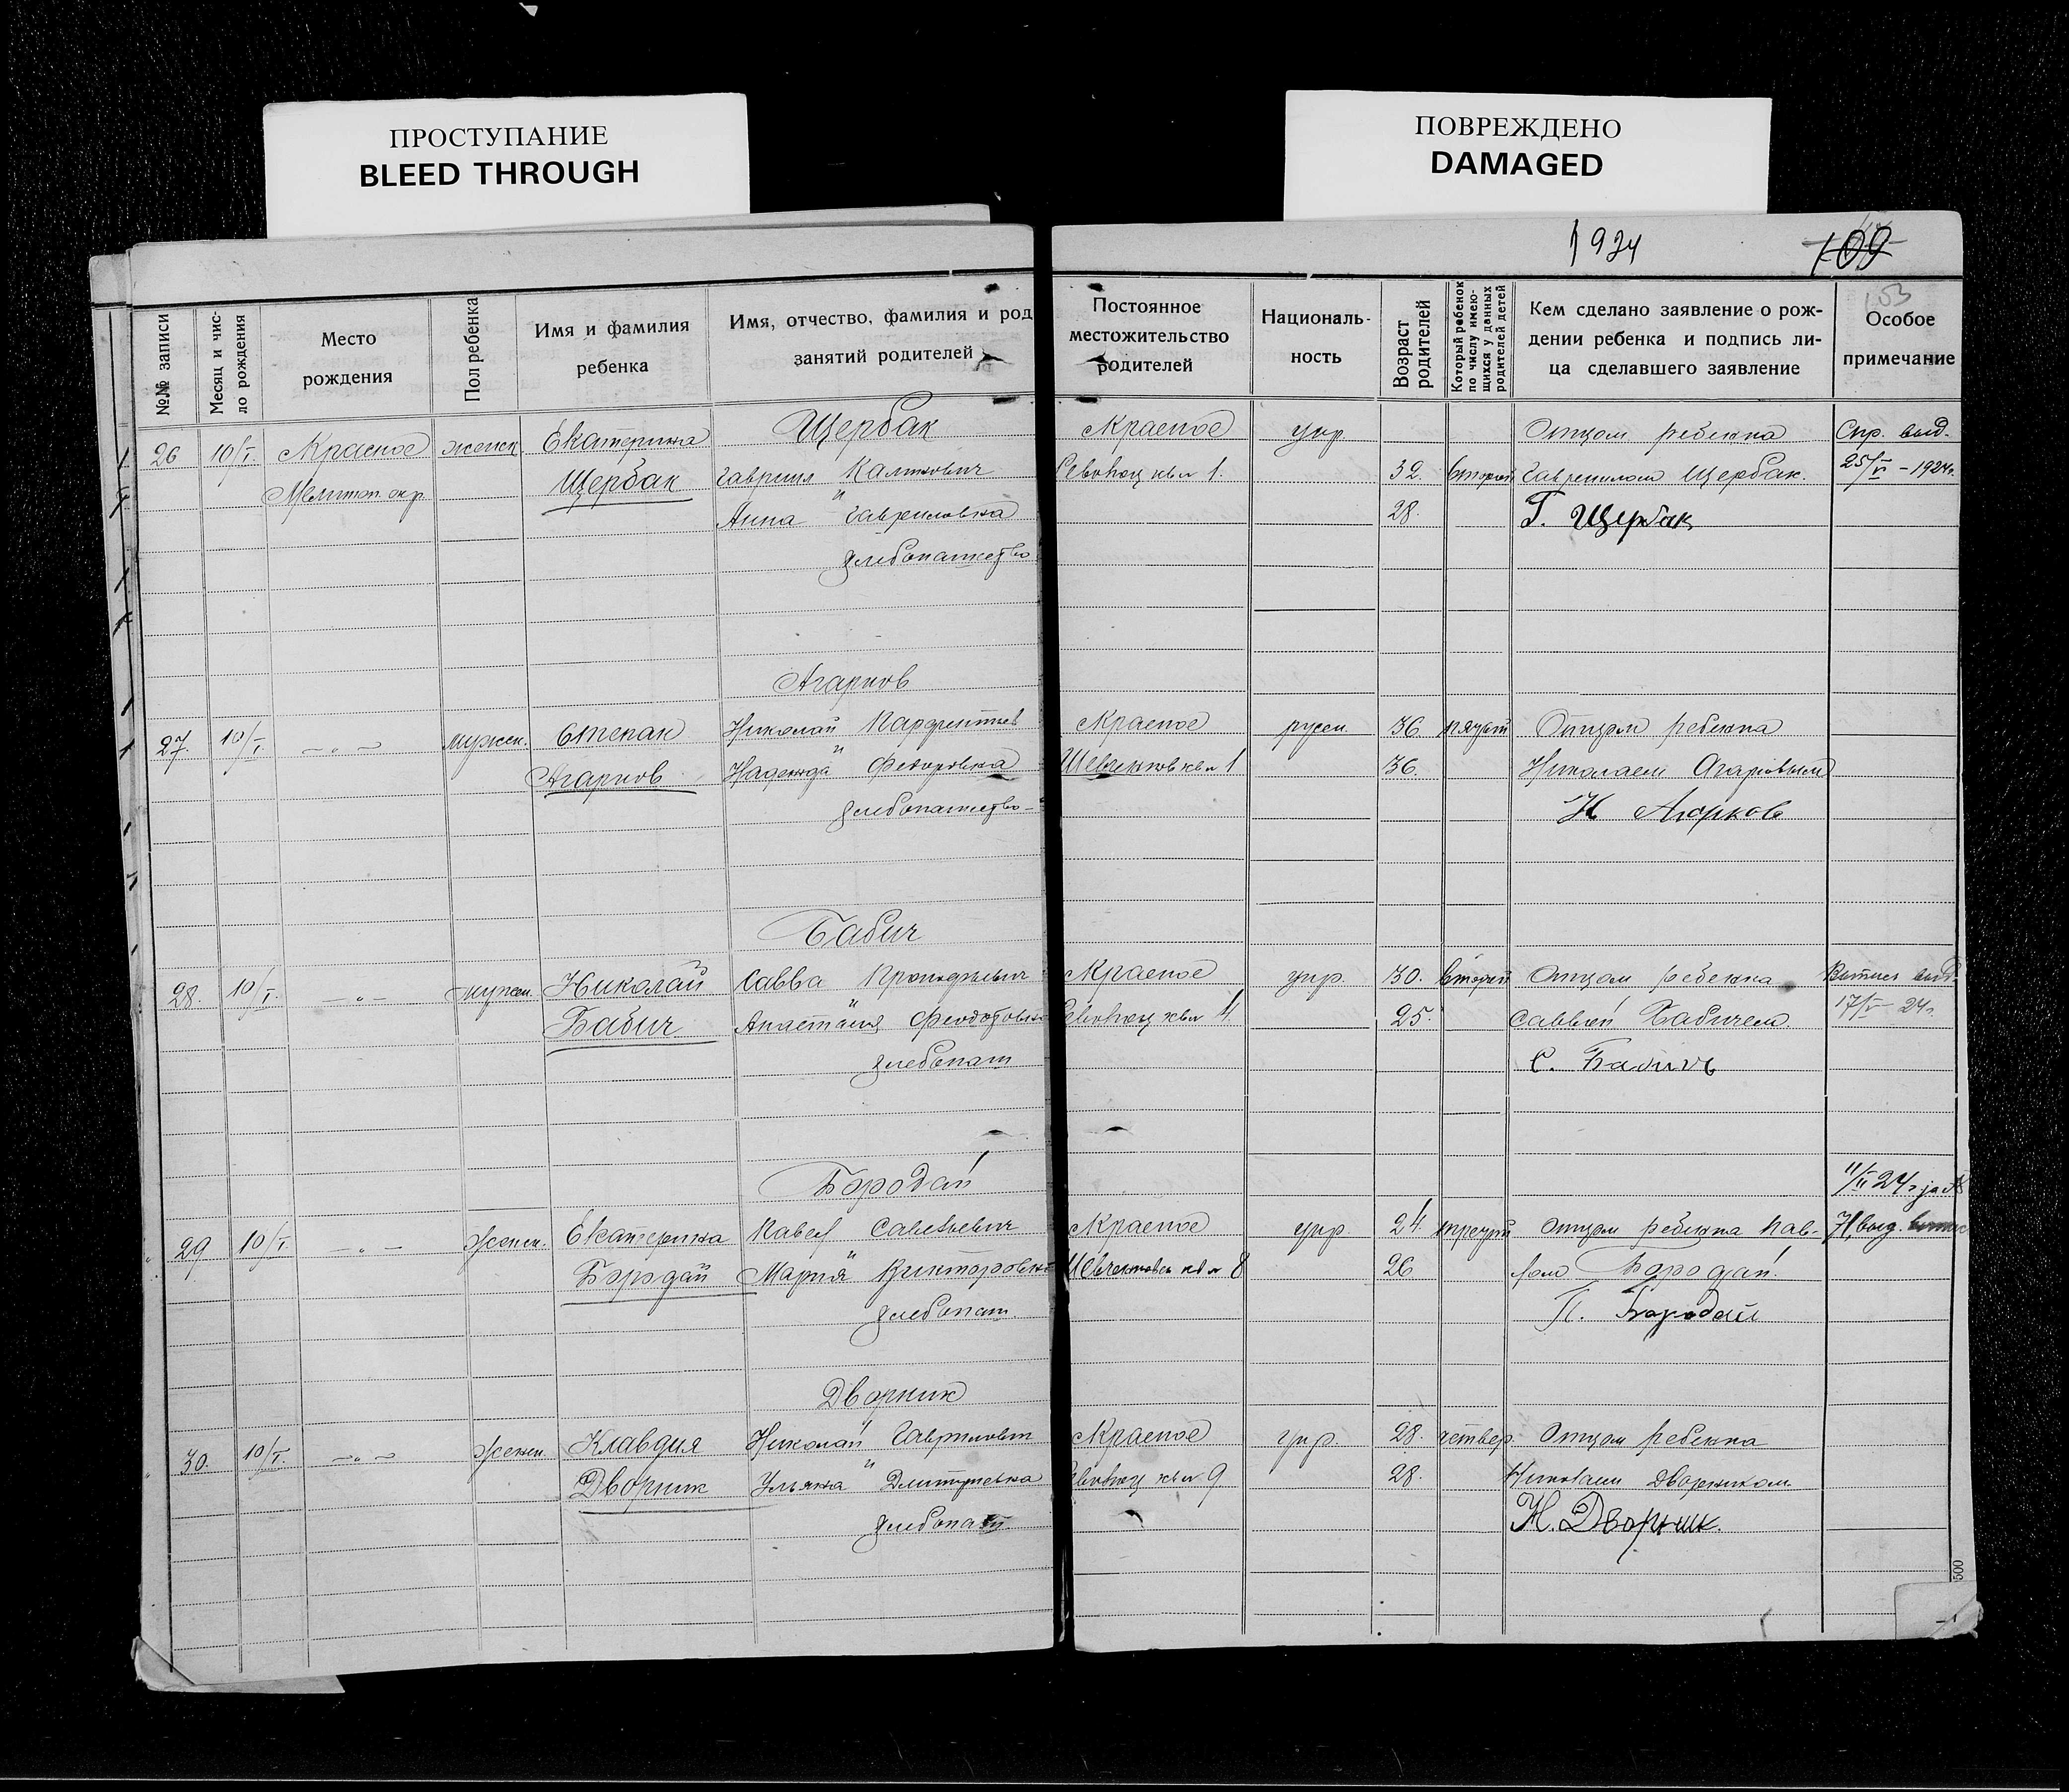 ПРОСТУПАНИЕ
BLEED THROUGH
ПОВРЕЖДЕНО
DAMAGED
1924
109
153
№№ записи
Месяц и чис-
ло рождения
Место
рождения
Пол ребенка
Имя и фамилия
ребенка
Имя, отчество, фамилия и род
занятий родителей
Постоянное
местожительство
родителей
Националь-
ность
Возраст
родителей
Который ребенок
по числу имею-
щихся у данных
родителей детей
Кем сделано заявление о рож-
дении ребенка и подпись ли-
ца сделавшего заявление
Особое
примечание
Щербак
26 10/I. Красное женск. Екатерина Красное укр Отцом ребенка Спр. выд.
Мелитоп. окр. Щербак Гавриил 1. 32. второй Гавриилом Щербак. 25/VI - 1924г.
Анна " Гавриловна 28. Г. Щербак
хлебопашество
Агарков
27. 10/I. — " — мужск. Степан Николай Парфентьев Красное русск. 36. пятый Отцом ребенка
Агарков Надежда " Федоровна 1 36. Николаем Агарковым
хлебопашество - Н Агарков
Бабич
28. 10/I. — " — мужск. Николай Савва Прокофьевич Красное укр. 30. второй Отцом ребенка
Бабич Анастасия " Феодотовна 4. 25. Саввой Бабичем. 17/V - 24г.
хлебопаш С. Бабичъ
Бородай
11/II 24г за №
29 10/I. — " — женск. Екатерина Павел Савельевич Красное укр 24 третий Отцом ребенка Пав-
Бородай Мария " Викторовна 8 26 лом Бородай.
хлебопаш. П. Бородай
Дворник
30. 10/I. — " — женск. Клавдия Николай Гаврилович Красное укр. 28. четвер. Отцом ребенка
Дворник Ульяна " Дмитриевна 9 28. Николаем Дворником.
хлебопаш. Н. Дворник.
500